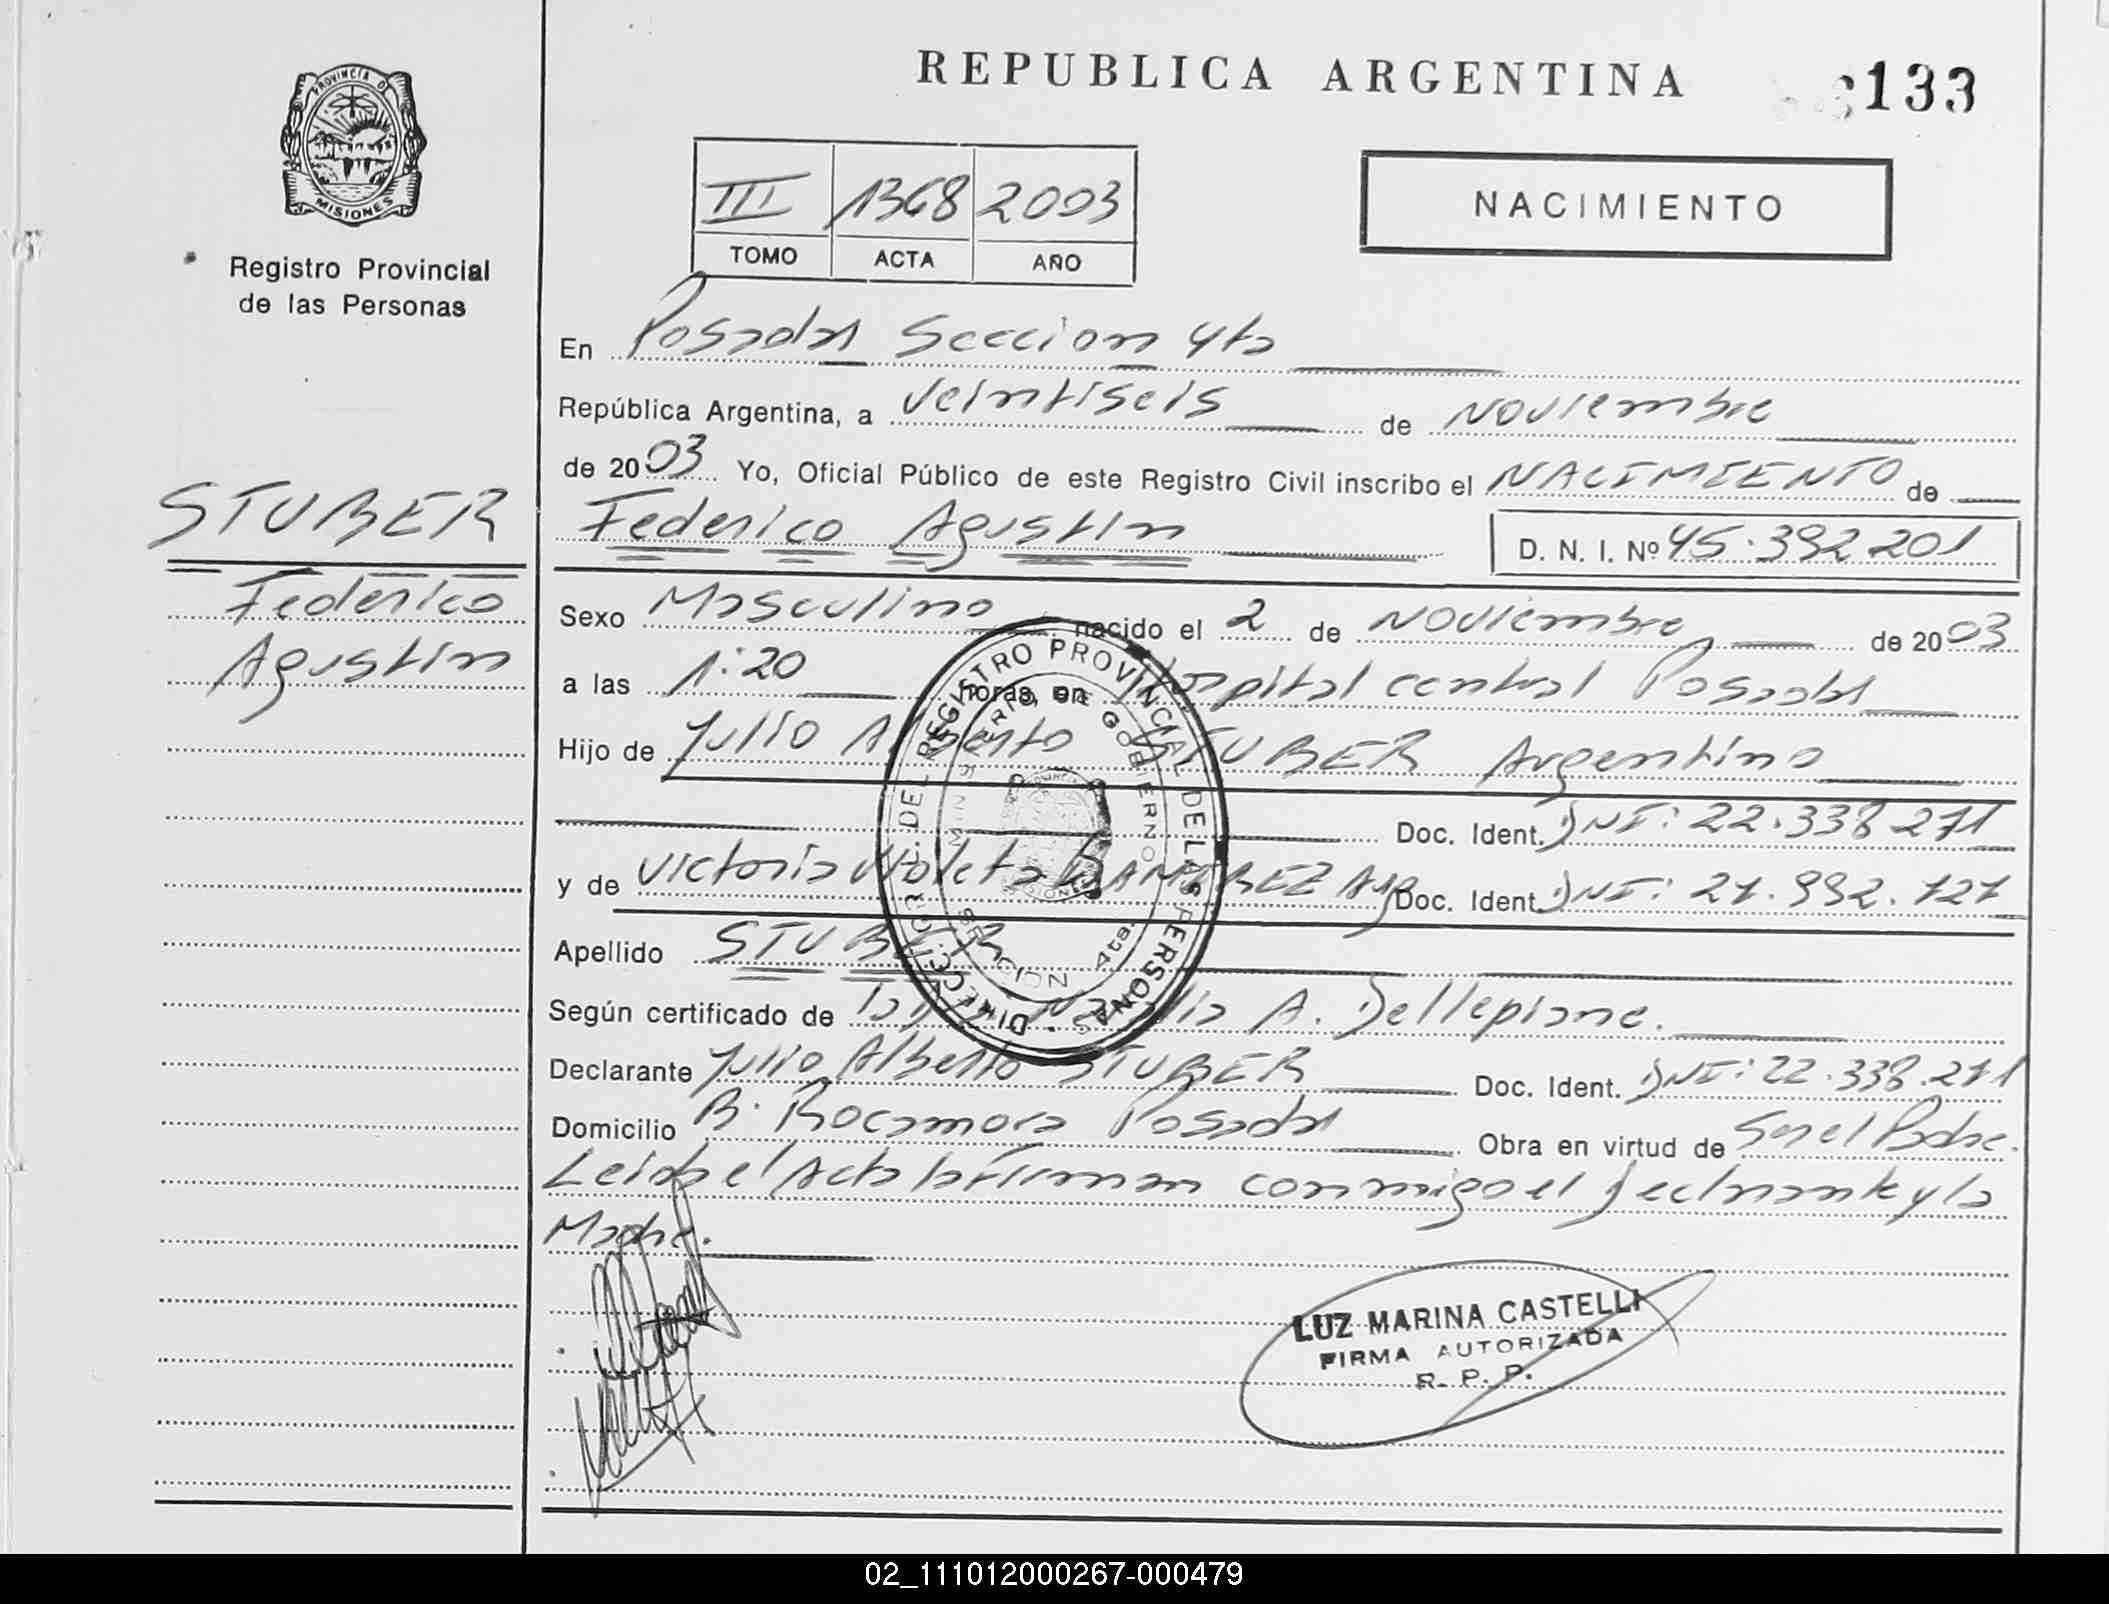 REPUBLICA ARGENTINA
133
PROVINCIA DE
MISIONES
Registro Provincial
de las Personas
III 1368 2003
TOMO ACTA AÑO
NACIMIENTO
En Posadas Seccion 4ta
República Argentina, a veintiseis de Noviembre
de 2003 Yo, Oficial Público de este Registro Civil inscribo el NACIMIENTO de
Federico Agustin D. N. I. Nº 45.392.201
STUBER
Federico
Agustin
Sexo Masculino nacido el 2 de Noviembre de 2003
a las 1:20 horas, en Hospital central Posadas
Hijo de Julio Alberto STUBER Argentino
Doc. Ident. DNI: 22.338.271
y de Victoria Violeta RAMIREZ Arg Doc. Ident. DNI: 21.992.727
Apellido STUBER
Según certificado de A. Dellepiane.
Declarante Julio Alberto STUBER Doc. Ident. DNI: 22.338.271
Domicilio B. Rocamora Posadas Obra en virtud de Ser el Padre.
Leida el Acta la firman conmigo el Declarante y la
Madre.
DIRECCION GRAL. DEL REGISTRO PROVINCIAL DE LAS PERSONAS
MINISTERIO DE GOBIERNO
SECCION 4ta.
LUZ MARINA CASTELLI
FIRMA AUTORIZADA
R. P. P.
02_111012000267-000479